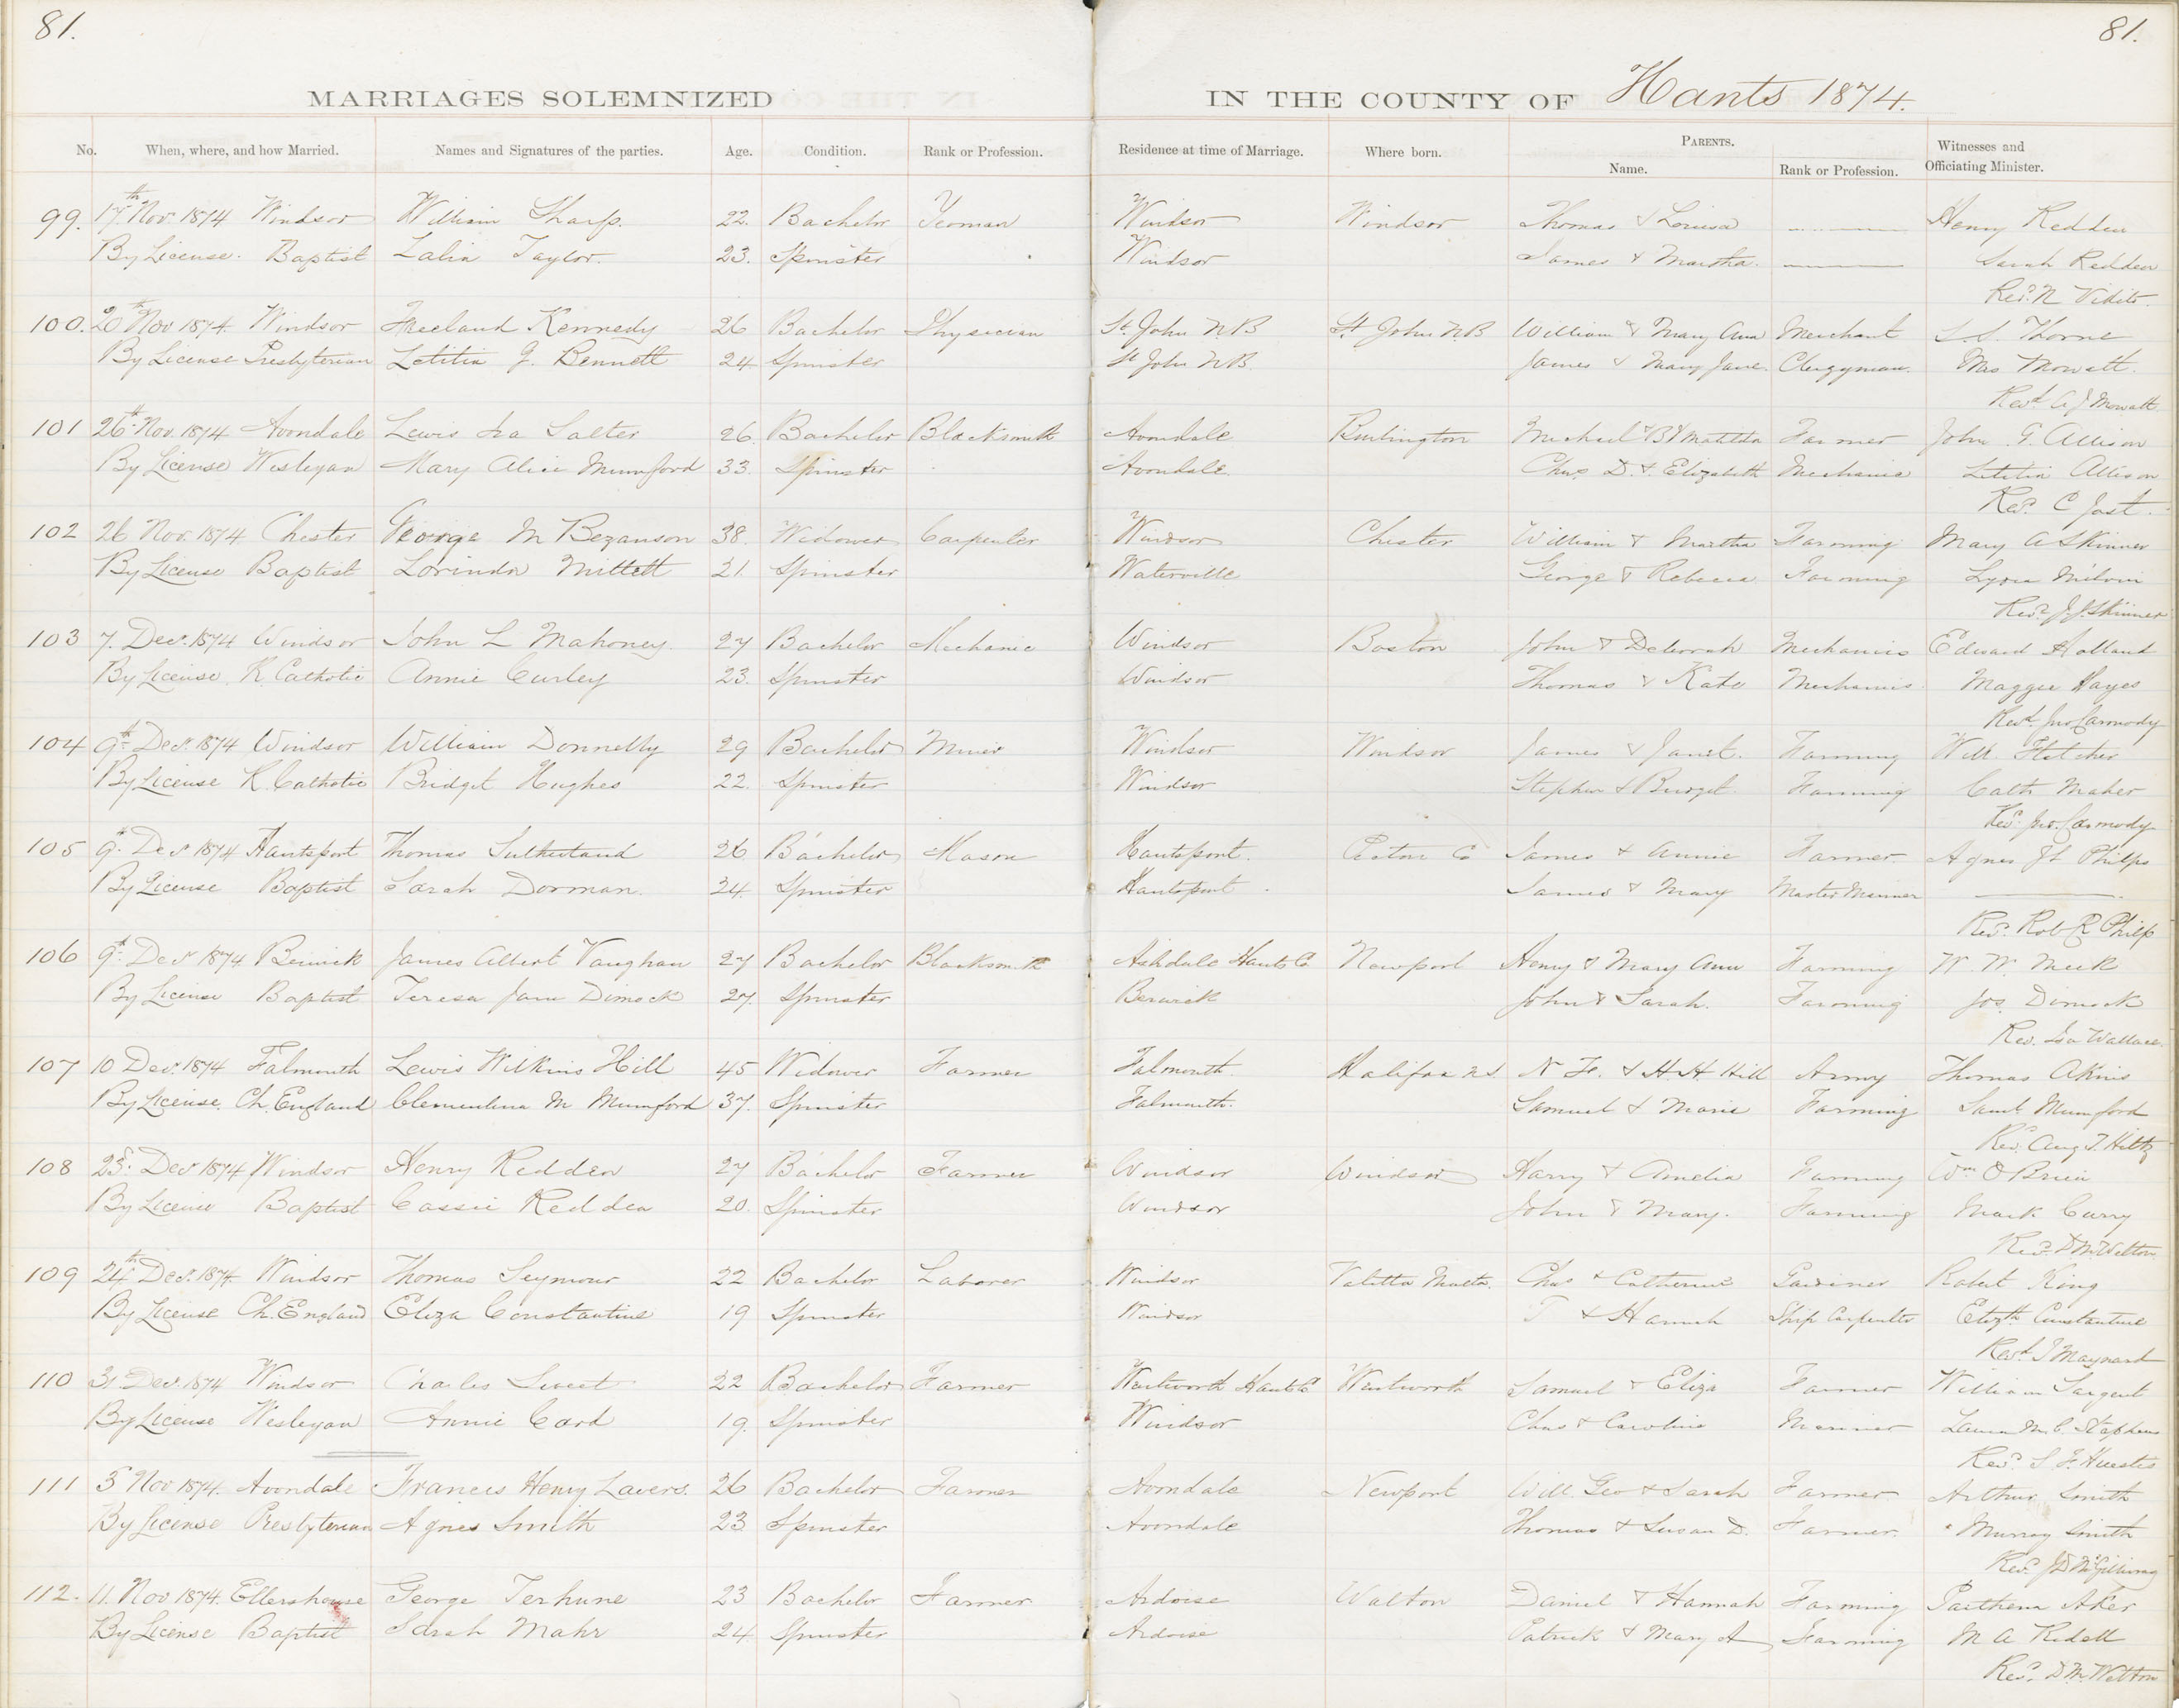 81. 81.
MARRIAGES SOLEMNIZED IN THE COUNTY OF Hants 1874.
No. When, where, and how Married. Names and Signatures of the parties. Age. Condition. Rank or Profession. Residence at time of Marriage. Where born. PARENTS. Witnesses and
Name. Rank or Profession. Officiating Minister.
99. 17th Nov 1874 Windsor William Sharp. 22. Bachelor Yeoman Windsor Windsor Thomas & Louisa Henry Redden
By License. Baptist Lalia Taylor. 23. Spinster Windsor James & Martha. Sarah Redden
Revd. N Vidito.
100. 20th Nov 1874. Windsor Freeland Kennedy 26 Bachelor Physician St. John N.B St. John N.B William & Mary Ann Merchant S.S. Thorne
By License Presbyterian Letitia J. Bennett 24 Spinster St John N.B. James & Mary Jane. Clergyman. Mrs Mowatt.
Revd. A J Mowatt.
101 26th Nov. 1874 Avondale Lewis Ira Salter 26. Bachelor Blacksmith Avondale Burlington Michael B & Matilda Farmer John G. Allison
By License Wesleyan Mary Alice Mumford 33. Spinster Avondale. Chas D. & Elizabeth Mechanic Letitia Allison
Revd. C Jost.
102 26 Nov. 1874 Chester George M Bezanson 38. Widower Carpenter Windsor Chester William & Martha Farming Mary A Skinner
By License Baptist Lorinda Millett 21. Spinster Waterville George & Rebecca Farming Lydia Melvin
Revd. J.J. Skinner
103 7. Decr. 1874 Windsor John L Mahoney. 27 Bachelor Mechanic Windsor Boston John & Deborah Mechanics Edward Holland
By License R. Catholic Annie Curley 23. Spinster Windsor Thomas & Kate Mechanics Maggie Hayes
Revd. Jno Carmody
104 9th Decr. 1874 Windsor William Donnelly 29 Bachelor Miner Windsor Windsor James & Janet. Farming Will. Fletcher
By License R. Catholic Bridget Hughes 22. Spinster Windsor Stephen & Bridget. Farming Cath Maher
Revd. Jno. Carmody
105 9th Decr 1874 Hantsport Thomas Sutherland 26 Bachelor Mason Hantsport. Pictou Co James & Annie Farmer. Agnes Philps
By License Baptist Sarah Dorman. 24. Spinster Hantsport. James & Mary Master Mariner
Revd. Rob R Philp
106 9th Decr 1874 Berwick James Albert Vaughan 27 Bachelor Blacksmith Ashdale Hants Co Newport Henry & Mary Ann Farming W. W. Meek
By License Baptist Teresa Jane Dimock 27. Spinster Berwick John & Sarah. Farming Jos. Dimock
Rev. Isa Wallace.
107 10 Decr. 1874 Falmouth Lewis Wilkins Hill 45 Widower Farmer Falmouth. Halifax N.S N. F. & H. H. Hill Army Thomas Akins
By License. Ch. England Clementina M Mumford 37. Spinster Falmouth. Samuel & Maria Farming Saml. Mumford
Revd. Aug. T. Hiltz
108 23d. Decr 1874 Windsor Henry Redden 27 Bachelor Farmer Windsor Windsor Harry & Amelia Farming Wm O Brien
By License Baptist Cassie Redden 20. Spinster Windsor John & Mary. Farming Mark Curry
Revd. D M Welton
109 24th Decr. 1874 Windsor Thomas Seymour 22 Bachelor Laborer Windsor Valetta Malta. Chas & Catherine Gardiner Robert King
By License Ch. England Eliza Constantine 19 Spinster Windsor T & Hannah Ship Carpenter Elizth Constantine
Revd. J Maynard
110 31 Decr. 1874 Windsor Charles Sweet 22 Bachelor Farmer Wentworth Hants Co Wentworth Samuel & Eliza Farmer William Sargent
By License Wesleyan Annie Card 19. Spinster Windsor Chas & Caroline Mariner Laura M. C. Stephens
Revd. S. F. Huestis
111 5 Nov 1874. Avondale Francis Henry Lavers. 26 Bachelor Farmer Avondale Newport Will. Geo & Sarah Farmer Arthur Smith
By License Presbyterian Agnes Smith 23 Spinster Avondale Thomas & Susan D. Farmer. Murray Smith
Revd. J D McGillivray
112. 11. Nov 1874. Ellershouse George Terhune 23 Bachelor Farmer Ardoise Walton Daniel & Hannah Farming Parthena Aker
By License Baptist Sarah Mahr 24 Spinster Ardoise Patrick & Mary A Farming M A Ridell
Revd. D M Welton